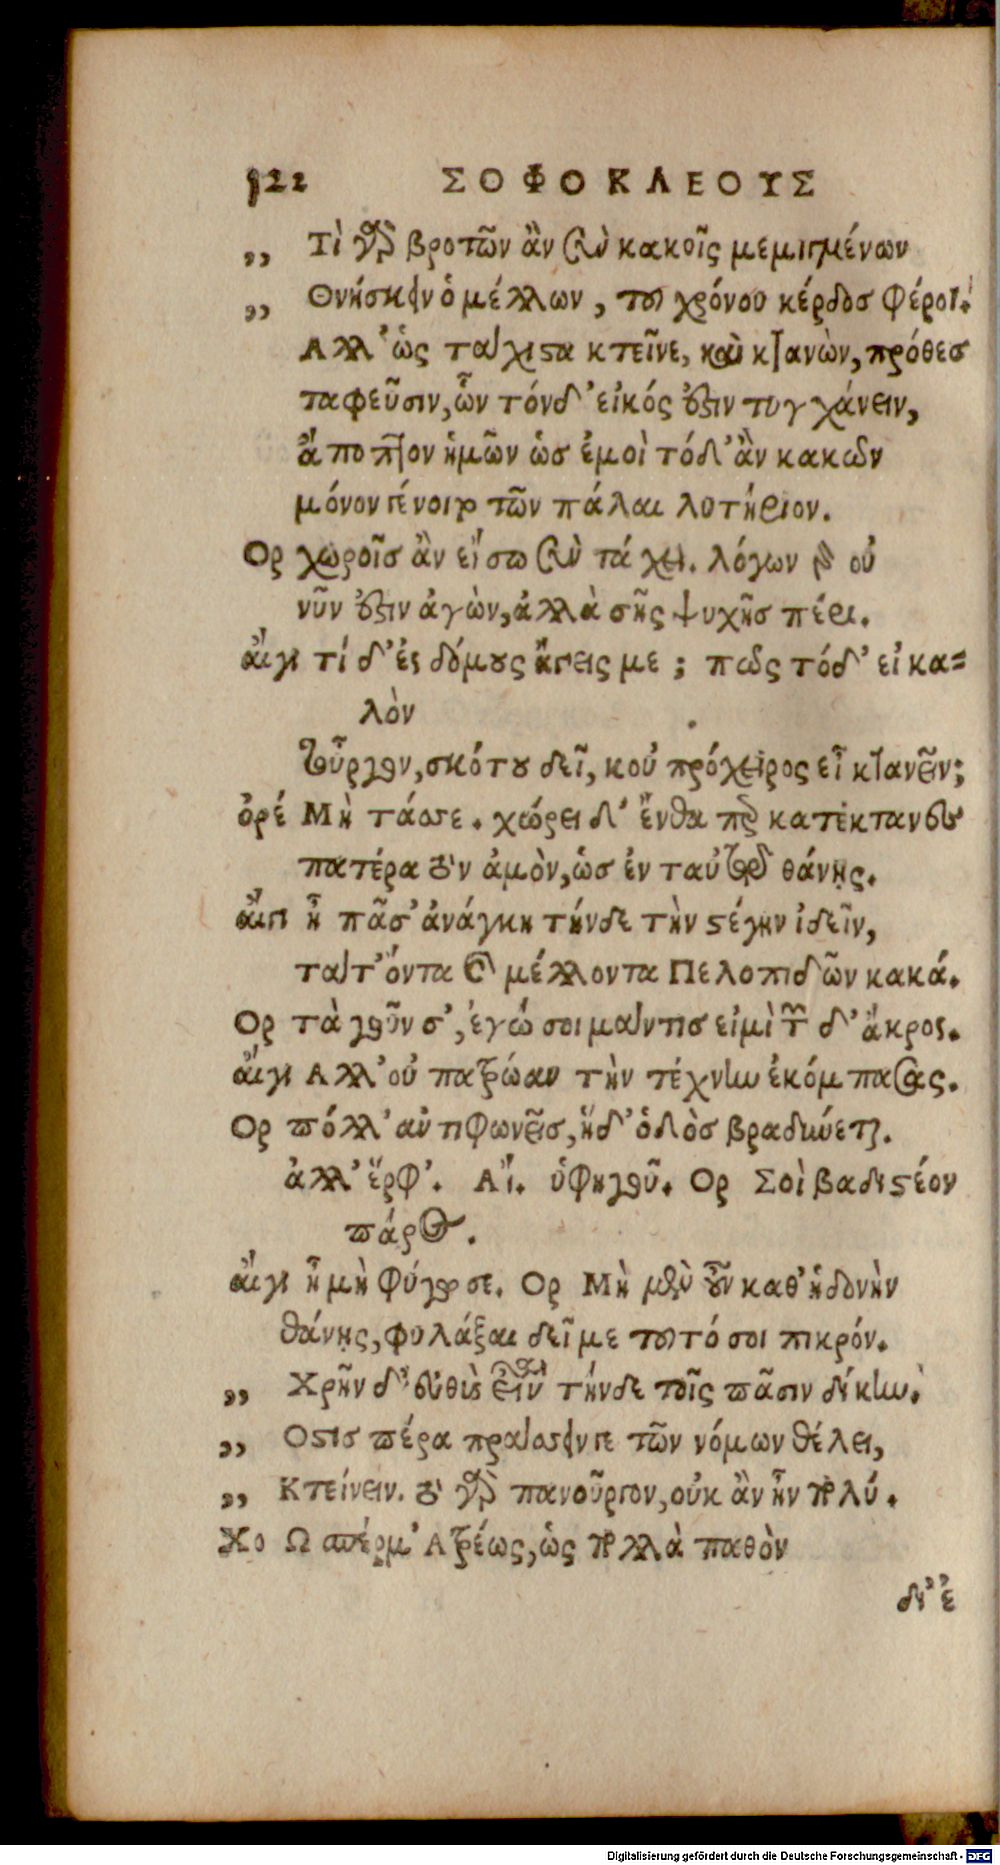 122 ΣΟΦΟΚΛΕΟΥΣ
,, Τί γὰρ βροτῶν ἂν σὺν κακοῖς μεμιγμένων
,, Θνήσκειν ὁ μέλλων, τοῦ χρόνου κέρδος φέροι.
Αλλ' ὡς τάχιστα κτεῖνε, καὶ κτανὼν, πρόθες
ταφεῦσιν, ὧν τόνδ' εἰκός ἐστιν τυγχάνειν,
ἄποπτον ἡμῶν ὡς ἐμοὶ τόδ' ἂν κακῶν
μόνον γένοιτο τῶν πάλαι λυτήριον.
Ορ χωροῖς ἂν εἴσω σὺν τάχει. λόγων γὰρ οὐ
νῦν ἐστιν ἀγὼν, ἀλλὰ σῆς ψυχῆς πέρι.
αἴγι τί δ' ἐς δόμους ἄγεις με; πῶς τόδ' εἰ κα=
λὸν
τοὖργον, σκότου δεῖ, κοὐ πρόχειρος εἶ κτανεῖν;
ὀρέ Μὴ τάσσε. χώρει δ' ἔνθα περ κατέκτανες
πατέρα τὸν ἀμὸν, ὡς ἐν ταὐτῷ θάνῃς.
αἴγι ἦ πᾶσ' ἀνάγκη τήνδε τὴν στέγην ἰδεῖν,
τά τ' ὄντα καὶ μέλλοντα Πελοπιδῶν κακά.
Ορ τὰ γοῦν σ', ἐγώ σοι μάντις εἰμὶ τῶν δ' ἄκρος.
αἴγι Αλλ' οὐ πατρώαν τὴν τέχνην ἐκόμπασας.
Ορ πόλλ' ἀντιφωνεῖς, ἥδ' ὁδὸς βραδύνεται.
ἀλλ' ἕρφ'. Αἴ. ὑφηγοῦ. Ορ Σοὶ βαδιστέον
πάρος.
αἴγι ἦ μὴ φύγω σε. Ορ Μὴ μὲν οὖν καθ' ἡδονὴν
θάνῃς, φυλάξαι δεῖ με τοῦτό σοι πικρόν.
,, Χρῆν δ' εὐθὺς εἶναι τήνδε τοῖς πᾶσιν δίκην.
,, Οστις πέρα πράσσειν γε τῶν νόμων θέλει,
,, Κτείνειν. τὸ γὰρ πανοῦργον, οὐκ ἂν ἦν πολύ.
Χο Ω σπέρμ' Ατρέως, ὡς πολλὰ παθὸν
δι' ἐ
Digitalisierung gefördert durch die Deutsche Forschungsgemeinschaft - DFG